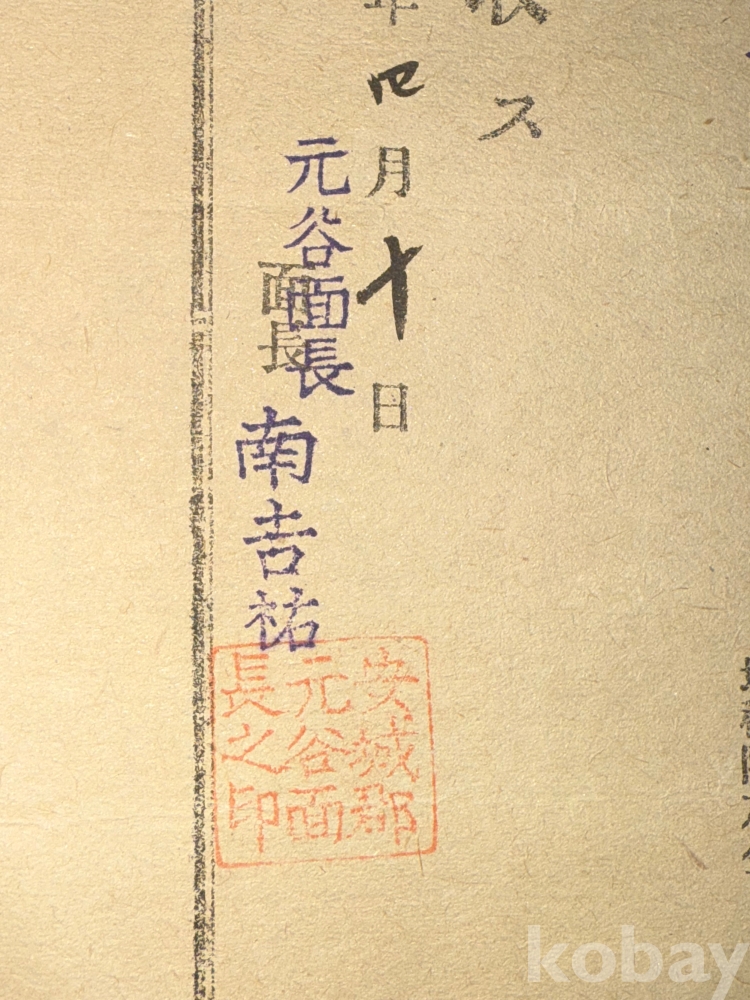 ス
年四月十日
元谷面長
面長
南吉祐
安城郡
元谷面
長之印
kobay